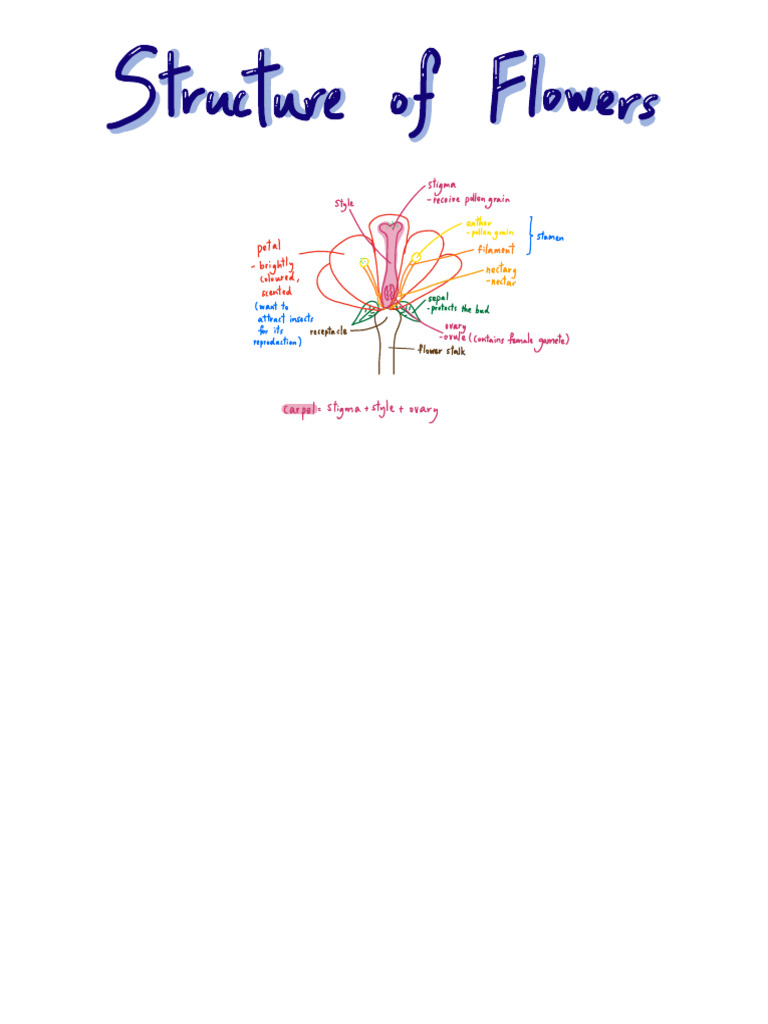 Structure of Flowers
stigma
- receive pollen grain
style
anther
- pollen grain
stamen
filament
petal
- brightly
coloured,
scented
(want to
attract insects
for its
reproduction)
nectary
- nectar
sepal
- protects the bud
receptacle
ovary
- ovule (contains female gamete)
flower stalk
carpel = stigma + style + ovary